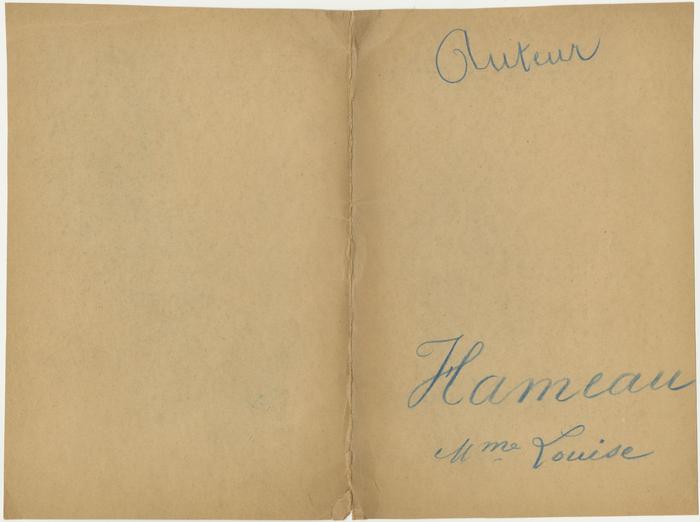 Auteur
Hameau
Mme Louise